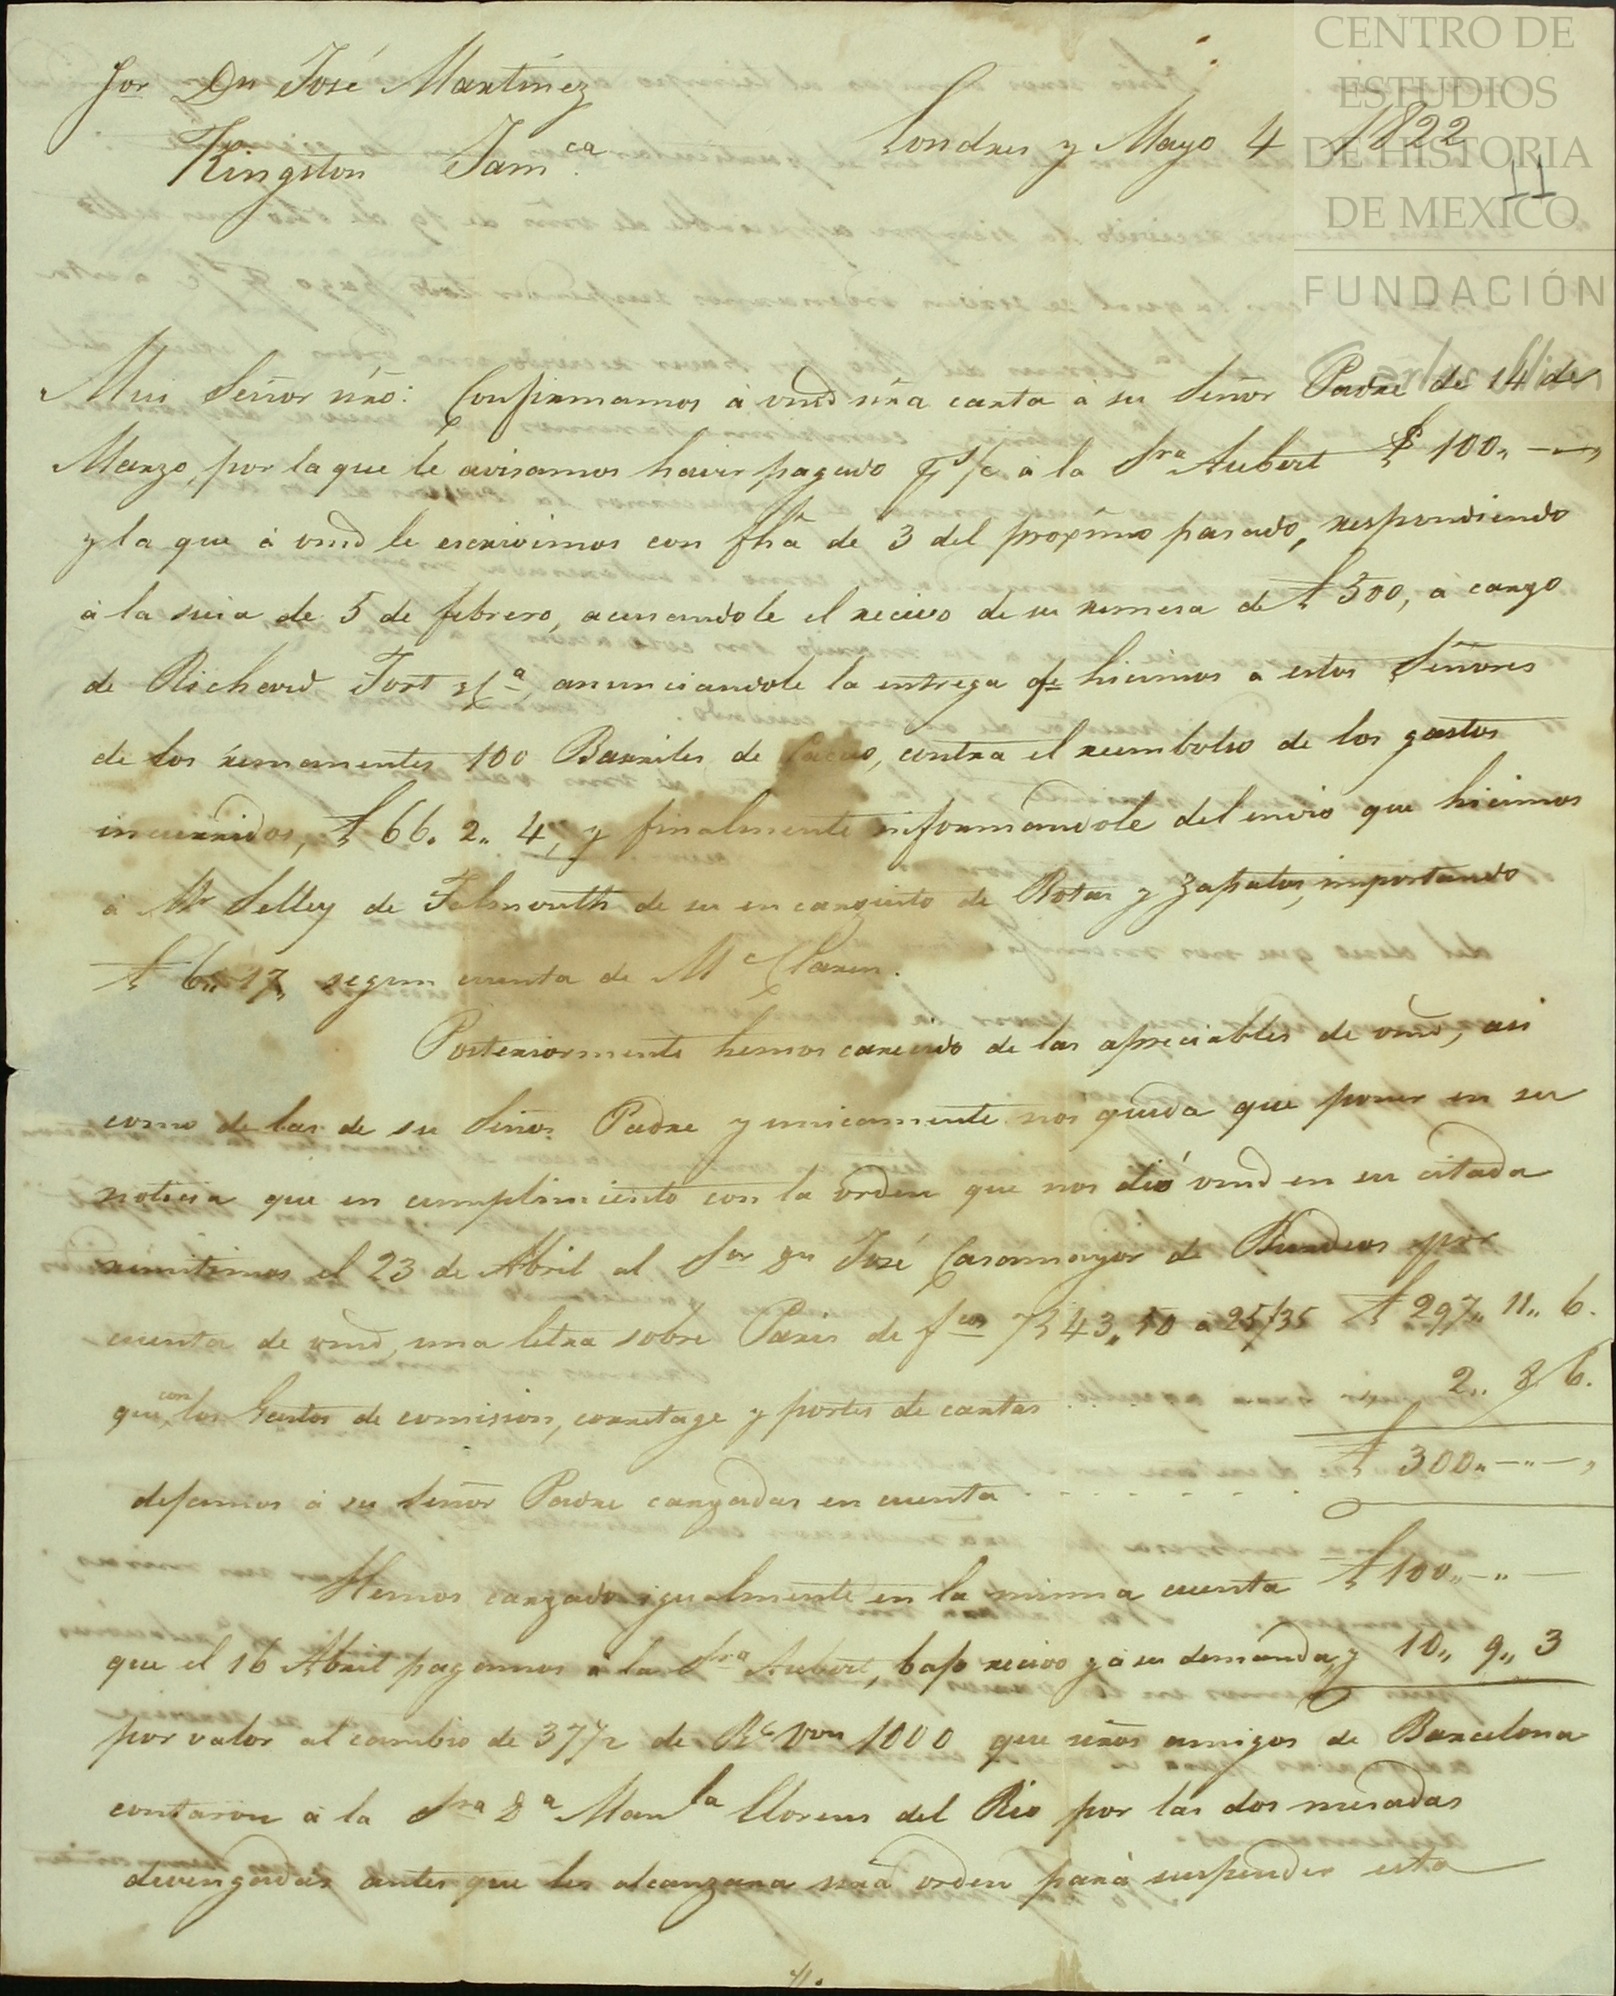 CENTRO DE
ESTUDIOS
DE HISTORIA
DE MEXICO
FUNDACIÓN
Carlos Slim
Sor Dn José Martínez
Kingston Jamca.
Londres y Mayo 4 1822
11
Mui Señor nro: Confirmamos à vmd nra carta a su Señor Padre de 14 de
Marzo, por la que le avisamos haver pagado p s/c à la Sra Aubert £ 100,, —,,—,,
y la que à vmd le escrivimos con fha de 3 del proximo pasado, respondiendo
à la suia de 5 de febrero, acusandole el recivo de su remesa de £ 500, à cargo
de Richard Fort y Ca, anunciandole la entrega qe hicimos a estos Señores
de los remanentes 100 Barriles de Cacao, contra el reembolso de los gastos
incurridos, £ 66. 2,, 4, y finalmente informandole del envio que hicimos
à Mr Selley de Falmouth de su encarguito de Botas y Zapatos, importando
£ 6,, 17,, segun cuenta de Mc Claren.
Posteriormente hemos carecido de las apreciables de vmd, asi
como de las de su Señor Padre y unicamente nos queda que poner en su
noticia que en cumplimiento con la orden que nos dió vmd en su citada
remitimos el 23 de Abril al Sor Dn José Casamayor de Burdeos por
cuenta de vmd, una letra sobre Paris de fcos 7543,,50 a 25/35 £ 297,, 11,, 6.
que con los Gastos de comision, corretage y portes de cartas . . . 2,, 8,, 6.
dejamos à su Señor Padre cargadas en cuenta . . . . . . . . . £ 300,,—,,—,,
Hemos cargado igualmente en la misma cuenta £ 100,,—,,—
que el 16 Abril pagamos à la Sra Aubert, bajo recivo y à su demánda, y 10,, 9,, 3
por valor al cambio de 37 1/2 de Rs Von 1000 que nros amigos de Barcelona
contaron à la Sra Da Manla Llorens del Rio por las dos mesadas
devengadas antes que les alcanzara nra orden parà suspender esta